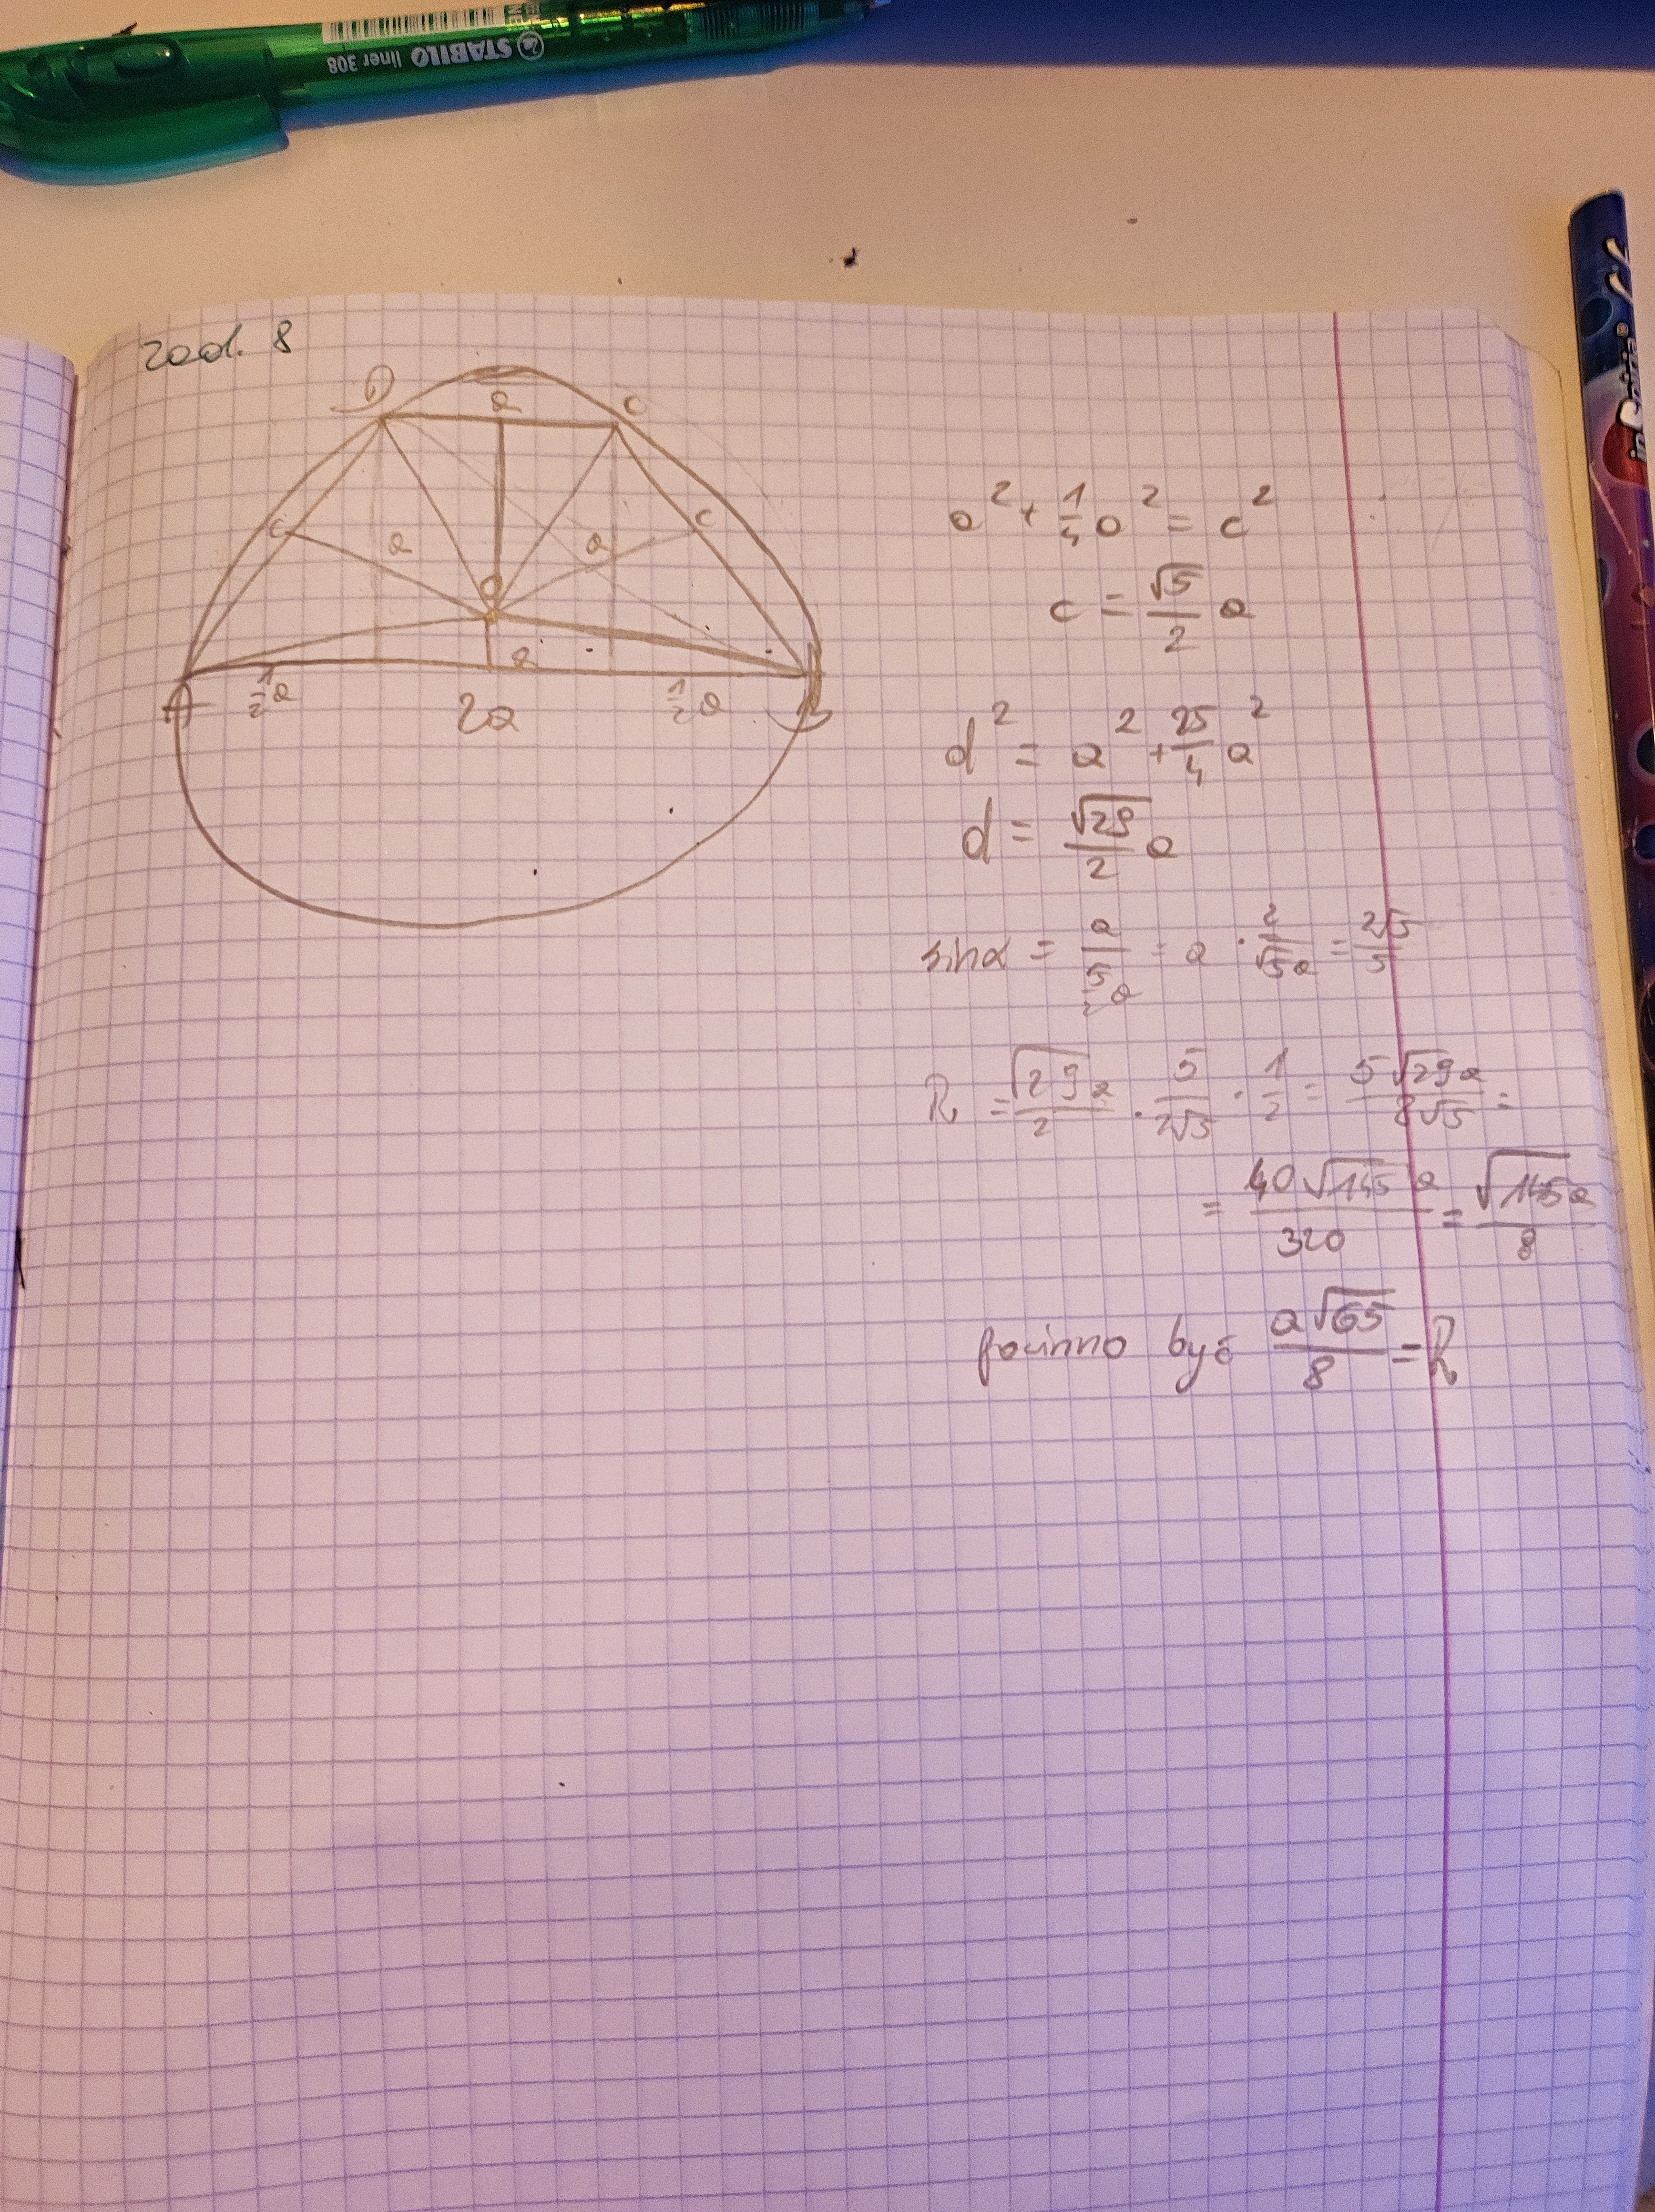 STABILO liner 308
zad. 8
D a C
c a a c
O
a
A ½a 2a ½a B
a² + 1/4 a² = c²
c = √5/2 a
d² = a² + 25/4 a²
d = √29/2 a
sinα = a/(5/2 a) = a · 2/(√5a) = 2√5/5
R = √29a/2 · 5/2√5 · 1/2 = 5√29a/8√5 =
= 40√145a/320 = √145a/8
powinno być a√65/8 = R